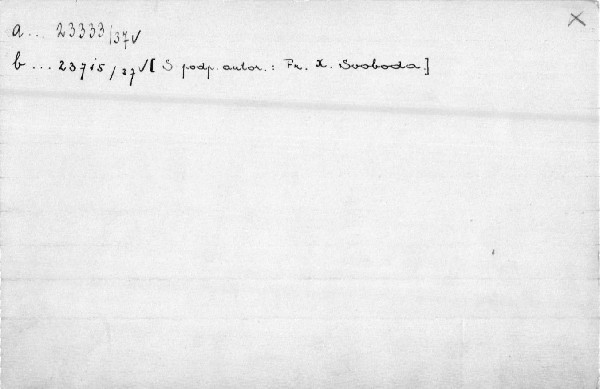 a... 23333/37 √
b... 23715/37 √ [S podp. autor.: Fr. X. Svoboda.]